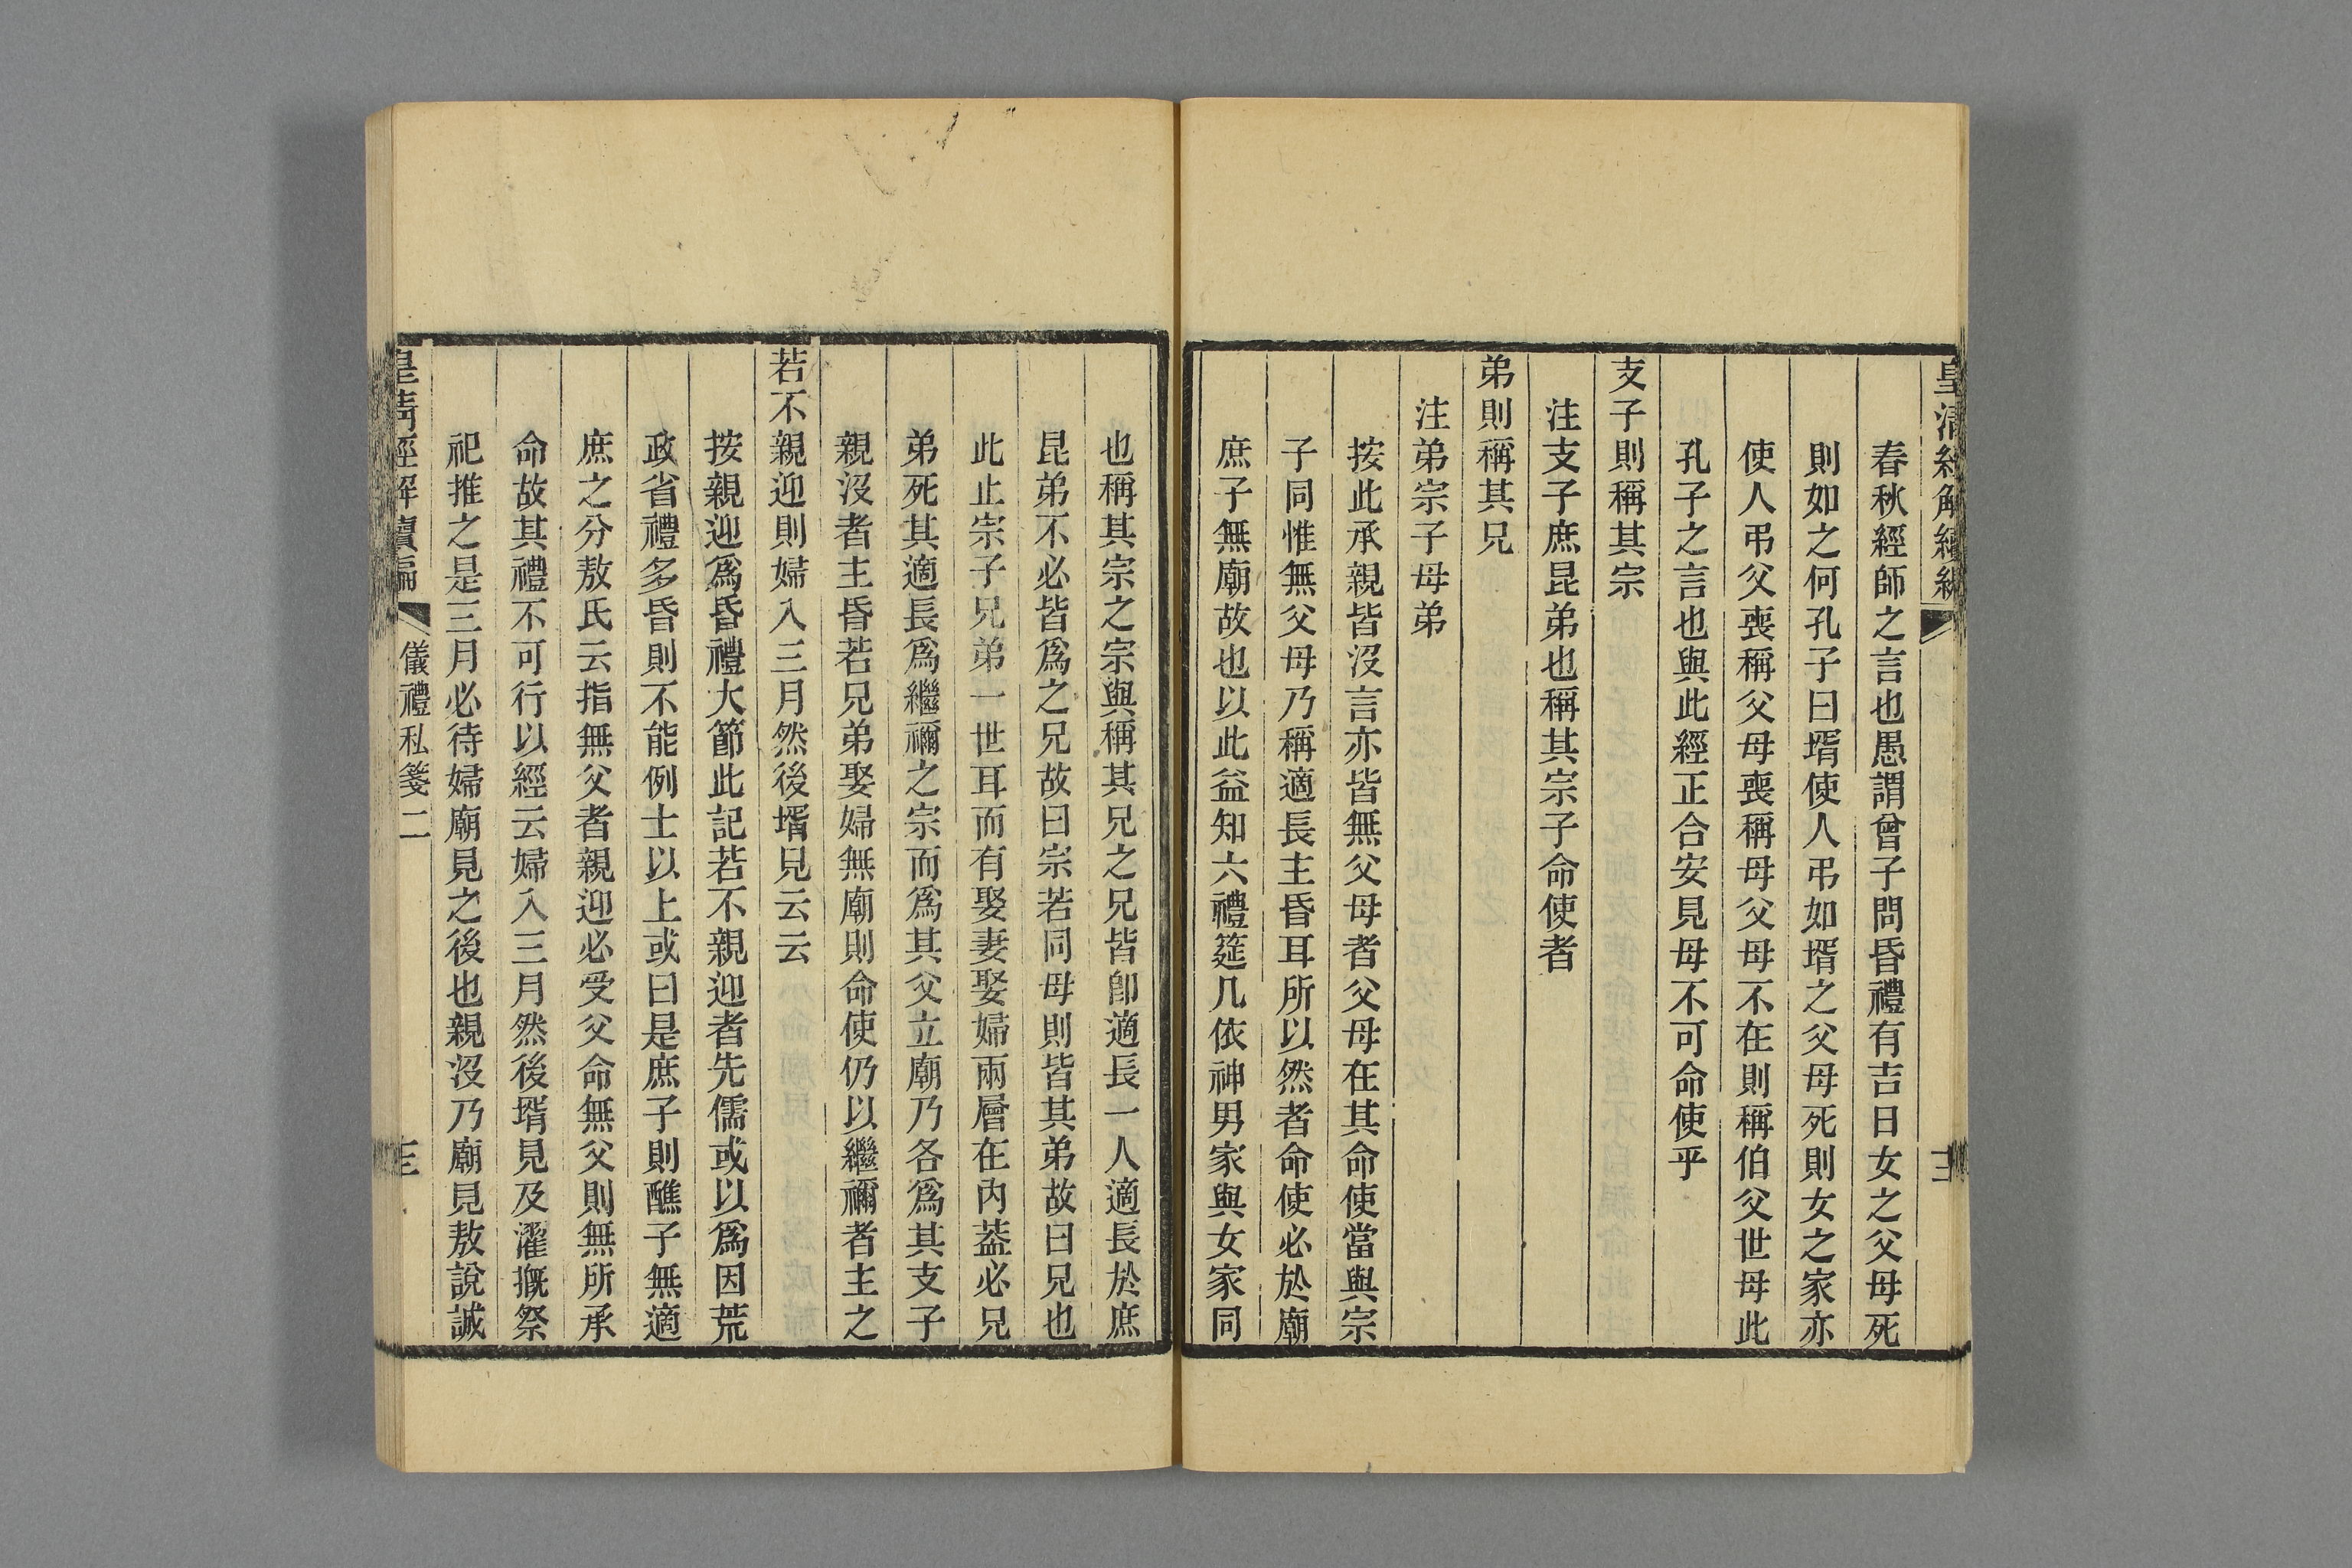 皇清經解續編
春秋經師之言也愚謂曾子問昏禮有吉日女之父母死
則如之何孔子曰壻使人弔如壻之父母死則女之家亦
使人弔父喪稱父母喪稱母父母不在則稱伯父世母此
孔子之言也與此經正合安見母不可命使乎
支子則稱其宗
注支子庶昆弟也稱其宗子命使者
弟則稱其兄
注弟宗子母弟
按此承親皆沒言亦皆無父母者父母在其命使當與宗
子同惟無父母乃稱適長主昏耳所以然者命使必於廟
庶子無廟故也以此益知六禮筵几依神男家與女家同
也稱其宗之宗與稱其兄之兄皆卽適長一人適長於庶
昆弟不必皆爲之兄故曰宗若同母則皆其弟故曰兄也
此止宗子兄弟一世耳而有娶妻娶婦兩層在內葢必兄
弟死其適長爲繼禰之宗而爲其父立廟乃各爲其支子
親沒者主昏若兄弟娶婦無廟則命使仍以繼禰者主之
若不親迎則婦入三月然後壻見云云
按親迎爲昏禮大節此記若不親迎者先儒或以爲因荒
政省禮多昏則不能例士以上或曰是庶子則醮子無適
庶之分敖氏云指無父者親迎必受父命無父則無所承
命故其禮不可行以經云婦入三月然後壻見及濯摡祭
祀推之是三月必待婦廟見之後也親沒乃廟見敖說誠
皇清經解續編
儀禮私箋二